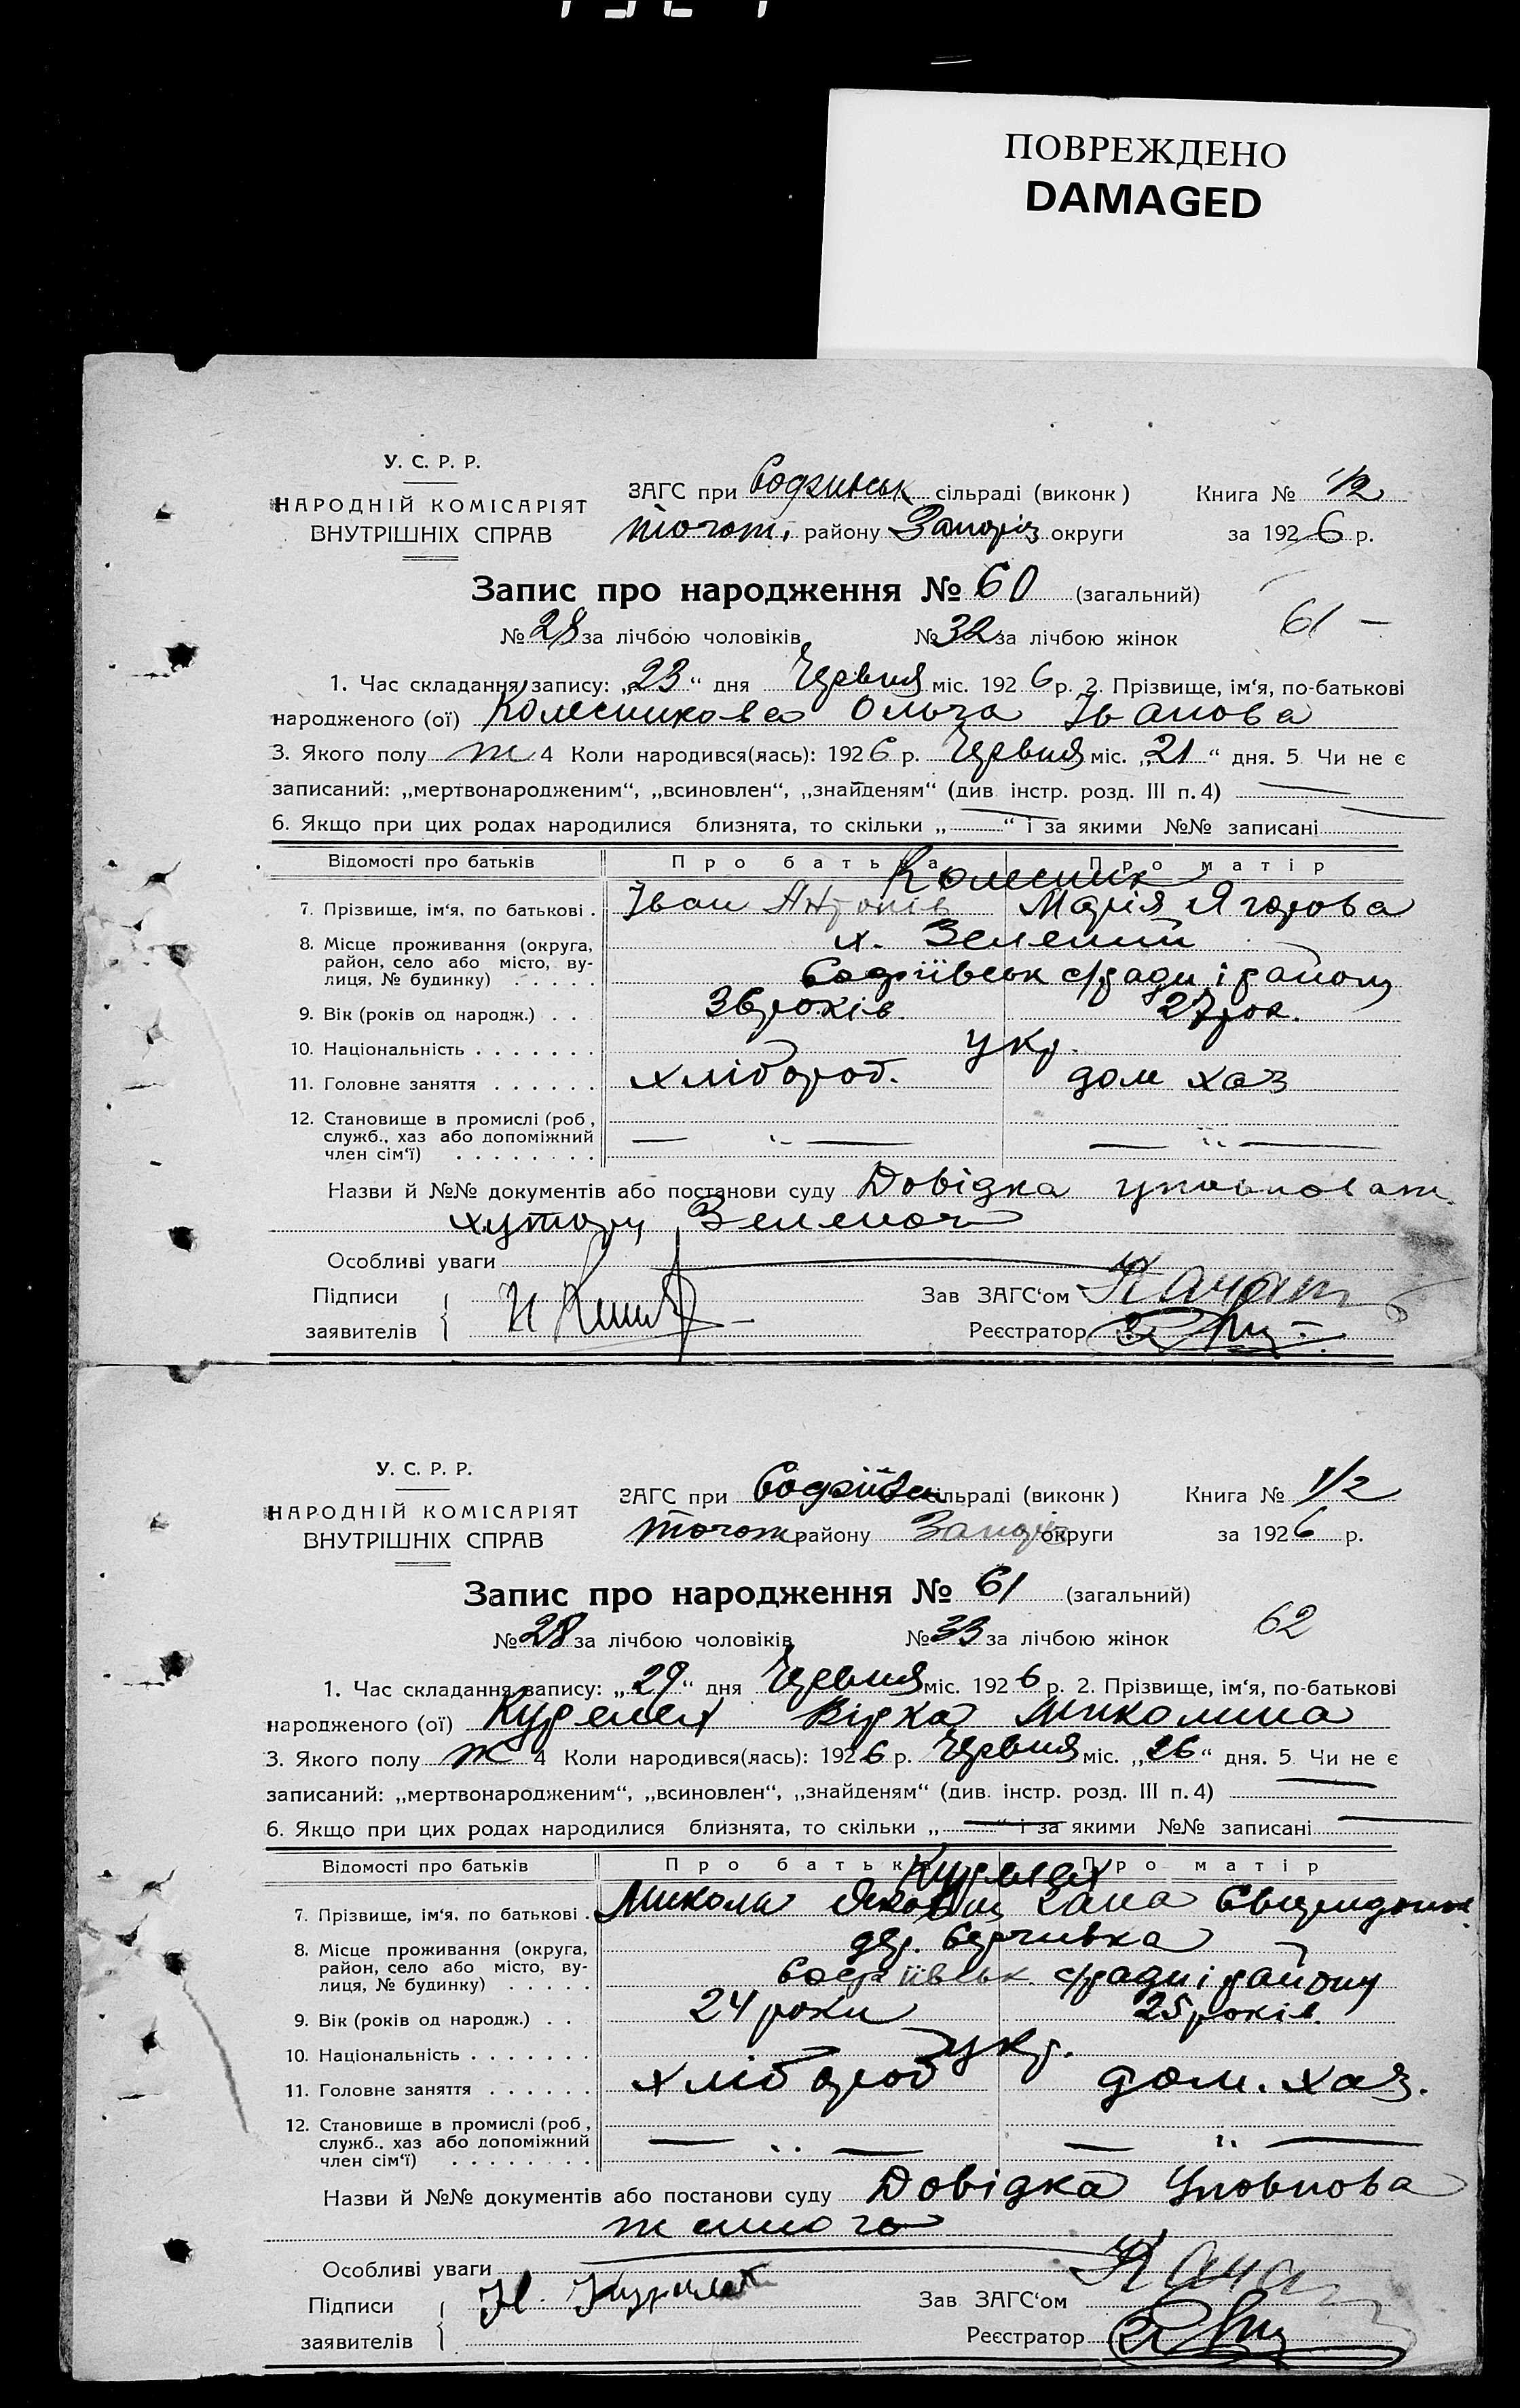 ПОВРЕЖДЕНО
DAMAGED
У. С. Р. Р.
НАРОДНІЙ КОМІСАРІЯТ
ВНУТРІШНІХ СПРАВ
ЗАГС при сільраді (виконк)
району Запоріз округи
Книга № 1/2
за 1926 р.
Запис про народження № 60 (загальний)
№ 28 за лічбою чоловіків № 32 за лічбою жінок
61 —
1. Час складання запису: „23“ дня Червня міс. 1926 р. 2. Прізвище, ім‘я, по-батькові
народженого (ої) Колесникова Ольга Іванова
3. Якого полу ж 4 Коли народився(лась): 1926 р. Червня міс. „21“ дня. 5 Чи не є
записаний: „мертвонародженим“, „всиновлен“, „знайденям“ (див. інстр. розд. III п. 4) —
6. Якщо при цих родах народилися близнята, то скільки „—“ і за якими №№ записані —
Відомості про батьків Про батька Про матір
Колесник
7. Прізвище, ім‘я, по батькові . Іван Антонів Марія Ягорова
8. Місце проживання (округа, х. Зелений
район, село або місто, ву-
лиця, № будинку) . . . . . Софіївськ с/ради і району
9. Вік (років од народж.) . . 36 років. 27 рок.
10. Національність . . . . . . . укр.
11. Головне заняття . . . . . . хлібороб. дом хаз
12. Становище в промислі (роб,
служб., хаз або допоміжний — „ — — „ —
член сім‘ї) . . . . . . . .
Назви й №№ документів або постанови суду Довідка уповноваж.
хутору Зеленого
Особливі уваги
Підписи
заявителів
Зав ЗАГС‘ом
Реєстратор
У. С. Р. Р.
НАРОДНІЙ КОМІСАРІЯТ
ВНУТРІШНІХ СПРАВ
ЗАГС при Софіївськ сільраді (виконк)
району Запоріз округи
Книга № 1/2
за 1926 р.
Запис про народження № 61 (загальний)
№ 28 за лічбою чоловіків № 33 за лічбою жінок
62
1. Час складання запису: „29“ дня Червня міс. 1926 р. 2. Прізвище, ім‘я, по-батькові
народженого (ої) Вірка Миколина
3. Якого полу ж 4 Коли народився(лась): 1926 р. Червня міс. „26“ дня. 5 Чи не є
записаний: „мертвонародженим“, „всиновлен“, „знайденям“ (див. інстр. розд. III п. 4) —
6. Якщо при цих родах народилися близнята, то скільки „—“ і за якими №№ записані —
Відомості про батьків Про батька Про матір
7. Прізвище, ім‘я, по батькові . Микола
8. Місце проживання (округа, дер.
район, село або місто, ву-
лиця, № будинку) . . . . . Софіївськ с/ради і району
9. Вік (років од народж.) . . 24 роки 25 років
10. Національність . . . . . . . укр.
11. Головне заняття . . . . . . хлібороб дом. хаз.
12. Становище в промислі (роб,
служб., хаз або допоміжний — „ — — „ —
член сім‘ї) . . . . . . . .
Назви й №№ документів або постанови суду Довідка Уповнова
женого
Особливі уваги
Підписи
заявителів
Зав ЗАГС‘ом
Реєстратор